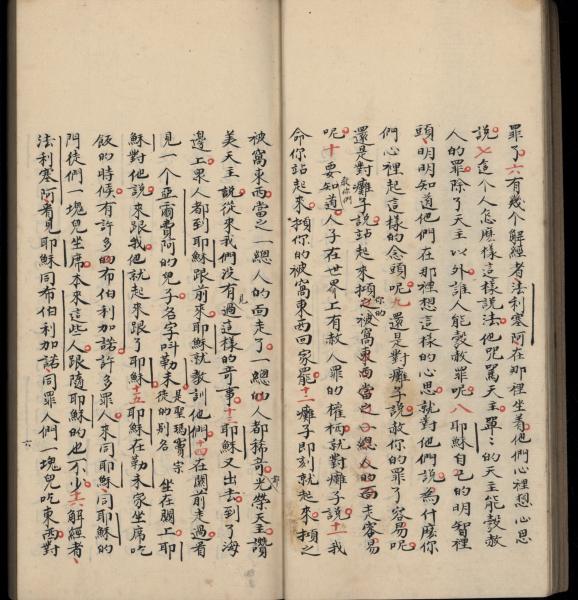 罪了六有幾个解經者法利塞阿在那裡坐着他們心裡想心思
說七這个人怎麽樣這樣說法他咒罵天主單〻的天主能彀赦
人的罪除了天主以外誰人能彀赦罪呢八耶穌自己的明智裡
頭明明知道他們在那裡想這樣的心思就對他們說為什麽你
們心裡起這樣的念頭呢九還是對癱子說赦你的罪了容易呢
還是對癱子說站起來㩠你的被窩東西當之一總人的面走容易
呢十要教你們知道人子在世界上有赦人罪的權柄就對癱子說十一我
命你站起來㩠你的被窩東西回家罷十二癱子即刻就起來㩠之
被窩東西當之一總人的面走了一總的人都稀奇光榮天主讚
美天主說從來我們沒有見過這樣的奇事十三耶穌又出去到了海
邊上眾人都到耶穌跟前來耶穌就教訓他們十四在關前走過看
見一个亞爾費阿的兒子名字呌勒未是聖瑪竇宗徒的別名坐在關上耶
穌對他說來跟我他就起來跟了耶穌十五耶穌在勒未家坐席吃
飯的時候有許多的布伯利加諾許多罪人來同耶穌同耶穌的
門徒們一塊兒坐席本來這些人跟隨耶穌的也不少十六解經者
法利塞阿看見耶穌同布伯利加諾同罪人們一塊兒吃東西對
六